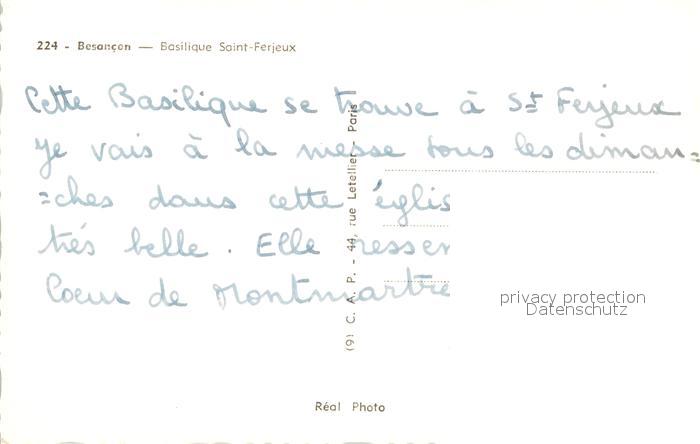 224 - Besançon — Basilique Saint-Ferjeux
Cette Basilique se trouve à St Ferjeux
je vais à la messe tous les diman=
=ches dans cette églis
très belle. Elle ressem
Coeur de Montmartre
(9) C. A. P. - 44, rue Letellier - Paris
privacy protection
Datenschutz
Réal Photo